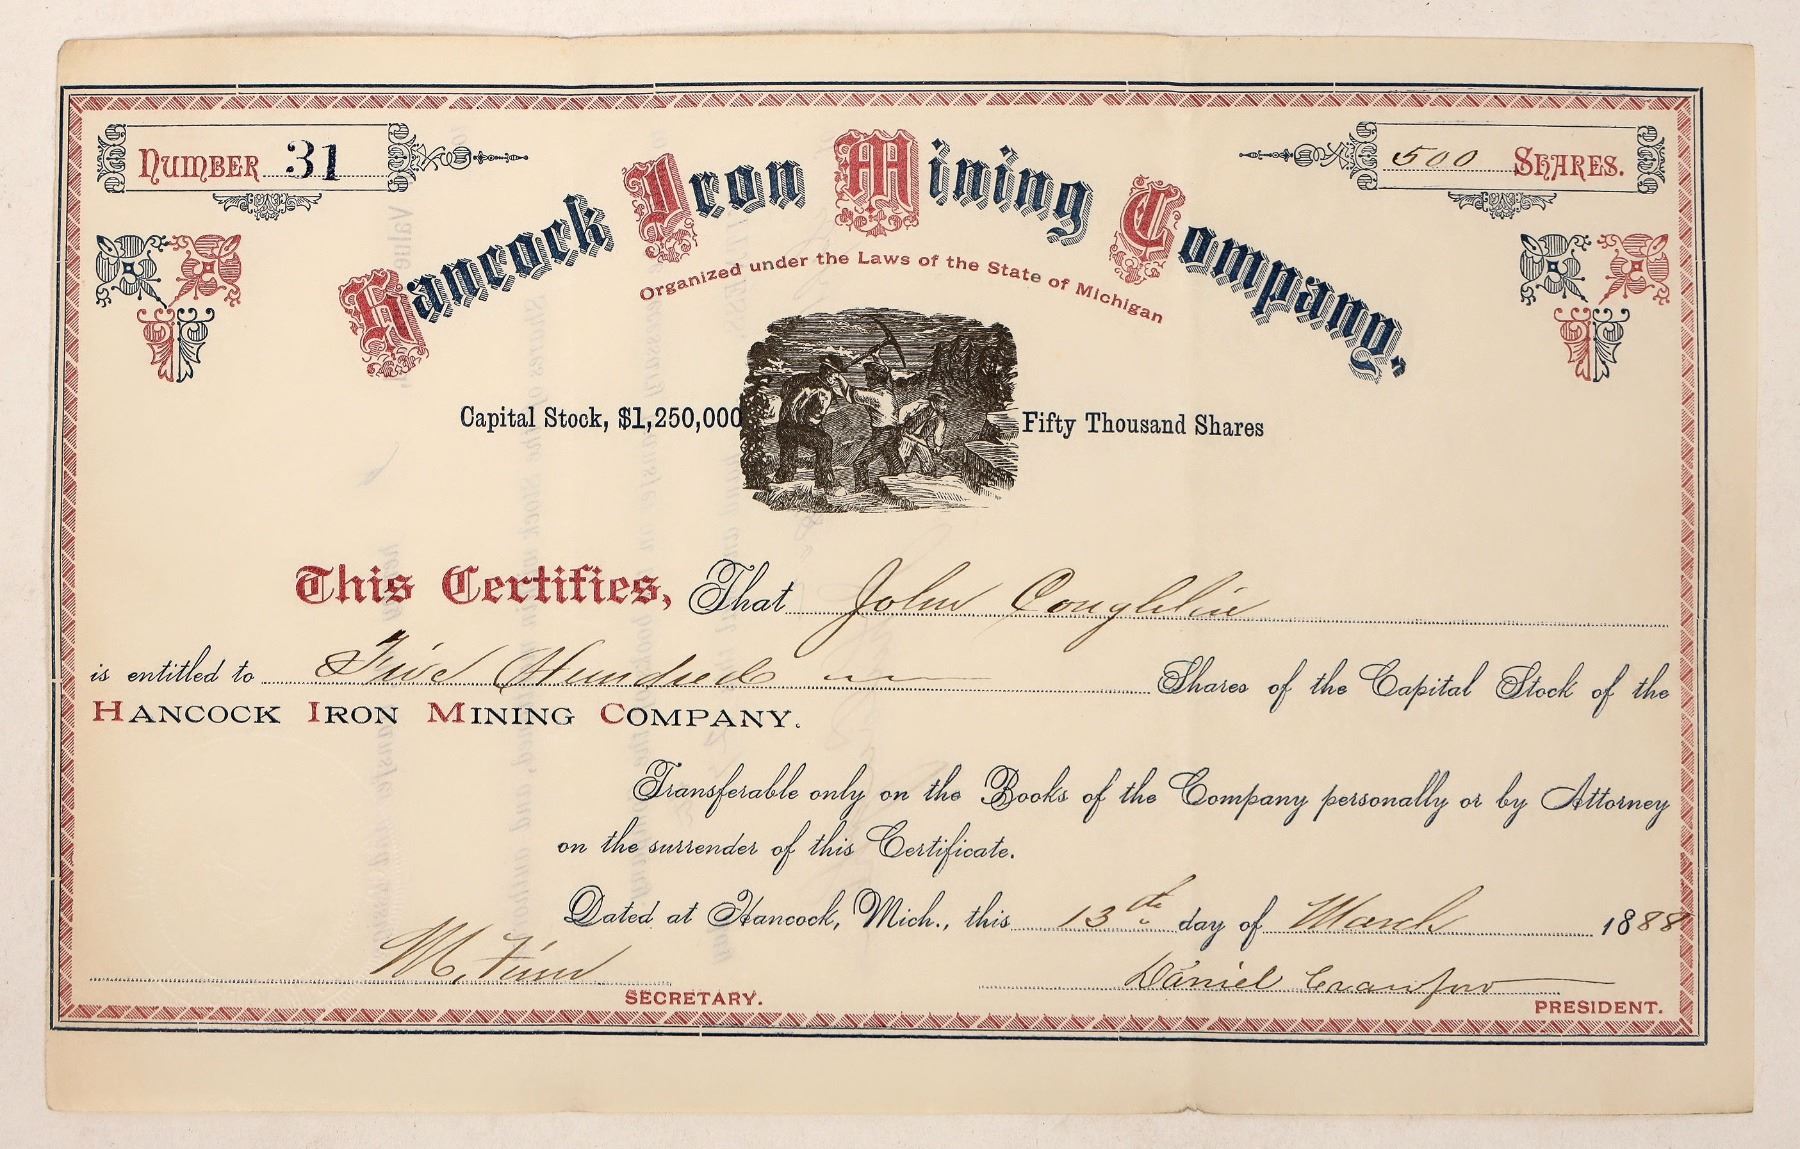 NUMBER 31
500 SHARES.
Hancock Iron Mining Company,
Organized under the Laws of the State of Michigan
Capital Stock, $1,250,000 Fifty Thousand Shares
This Certifies, That John Coughlin
is entitled to Five Hundred Shares of the Capital Stock of the
HANCOCK IRON MINING COMPANY.
Transferable only on the Books of the Company personally or by Attorney
on the surrender of this Certificate.
Dated at Hancock, Mich., this 13th day of March 1888
M. Finn
SECRETARY.
Daniel Crawford
PRESIDENT.